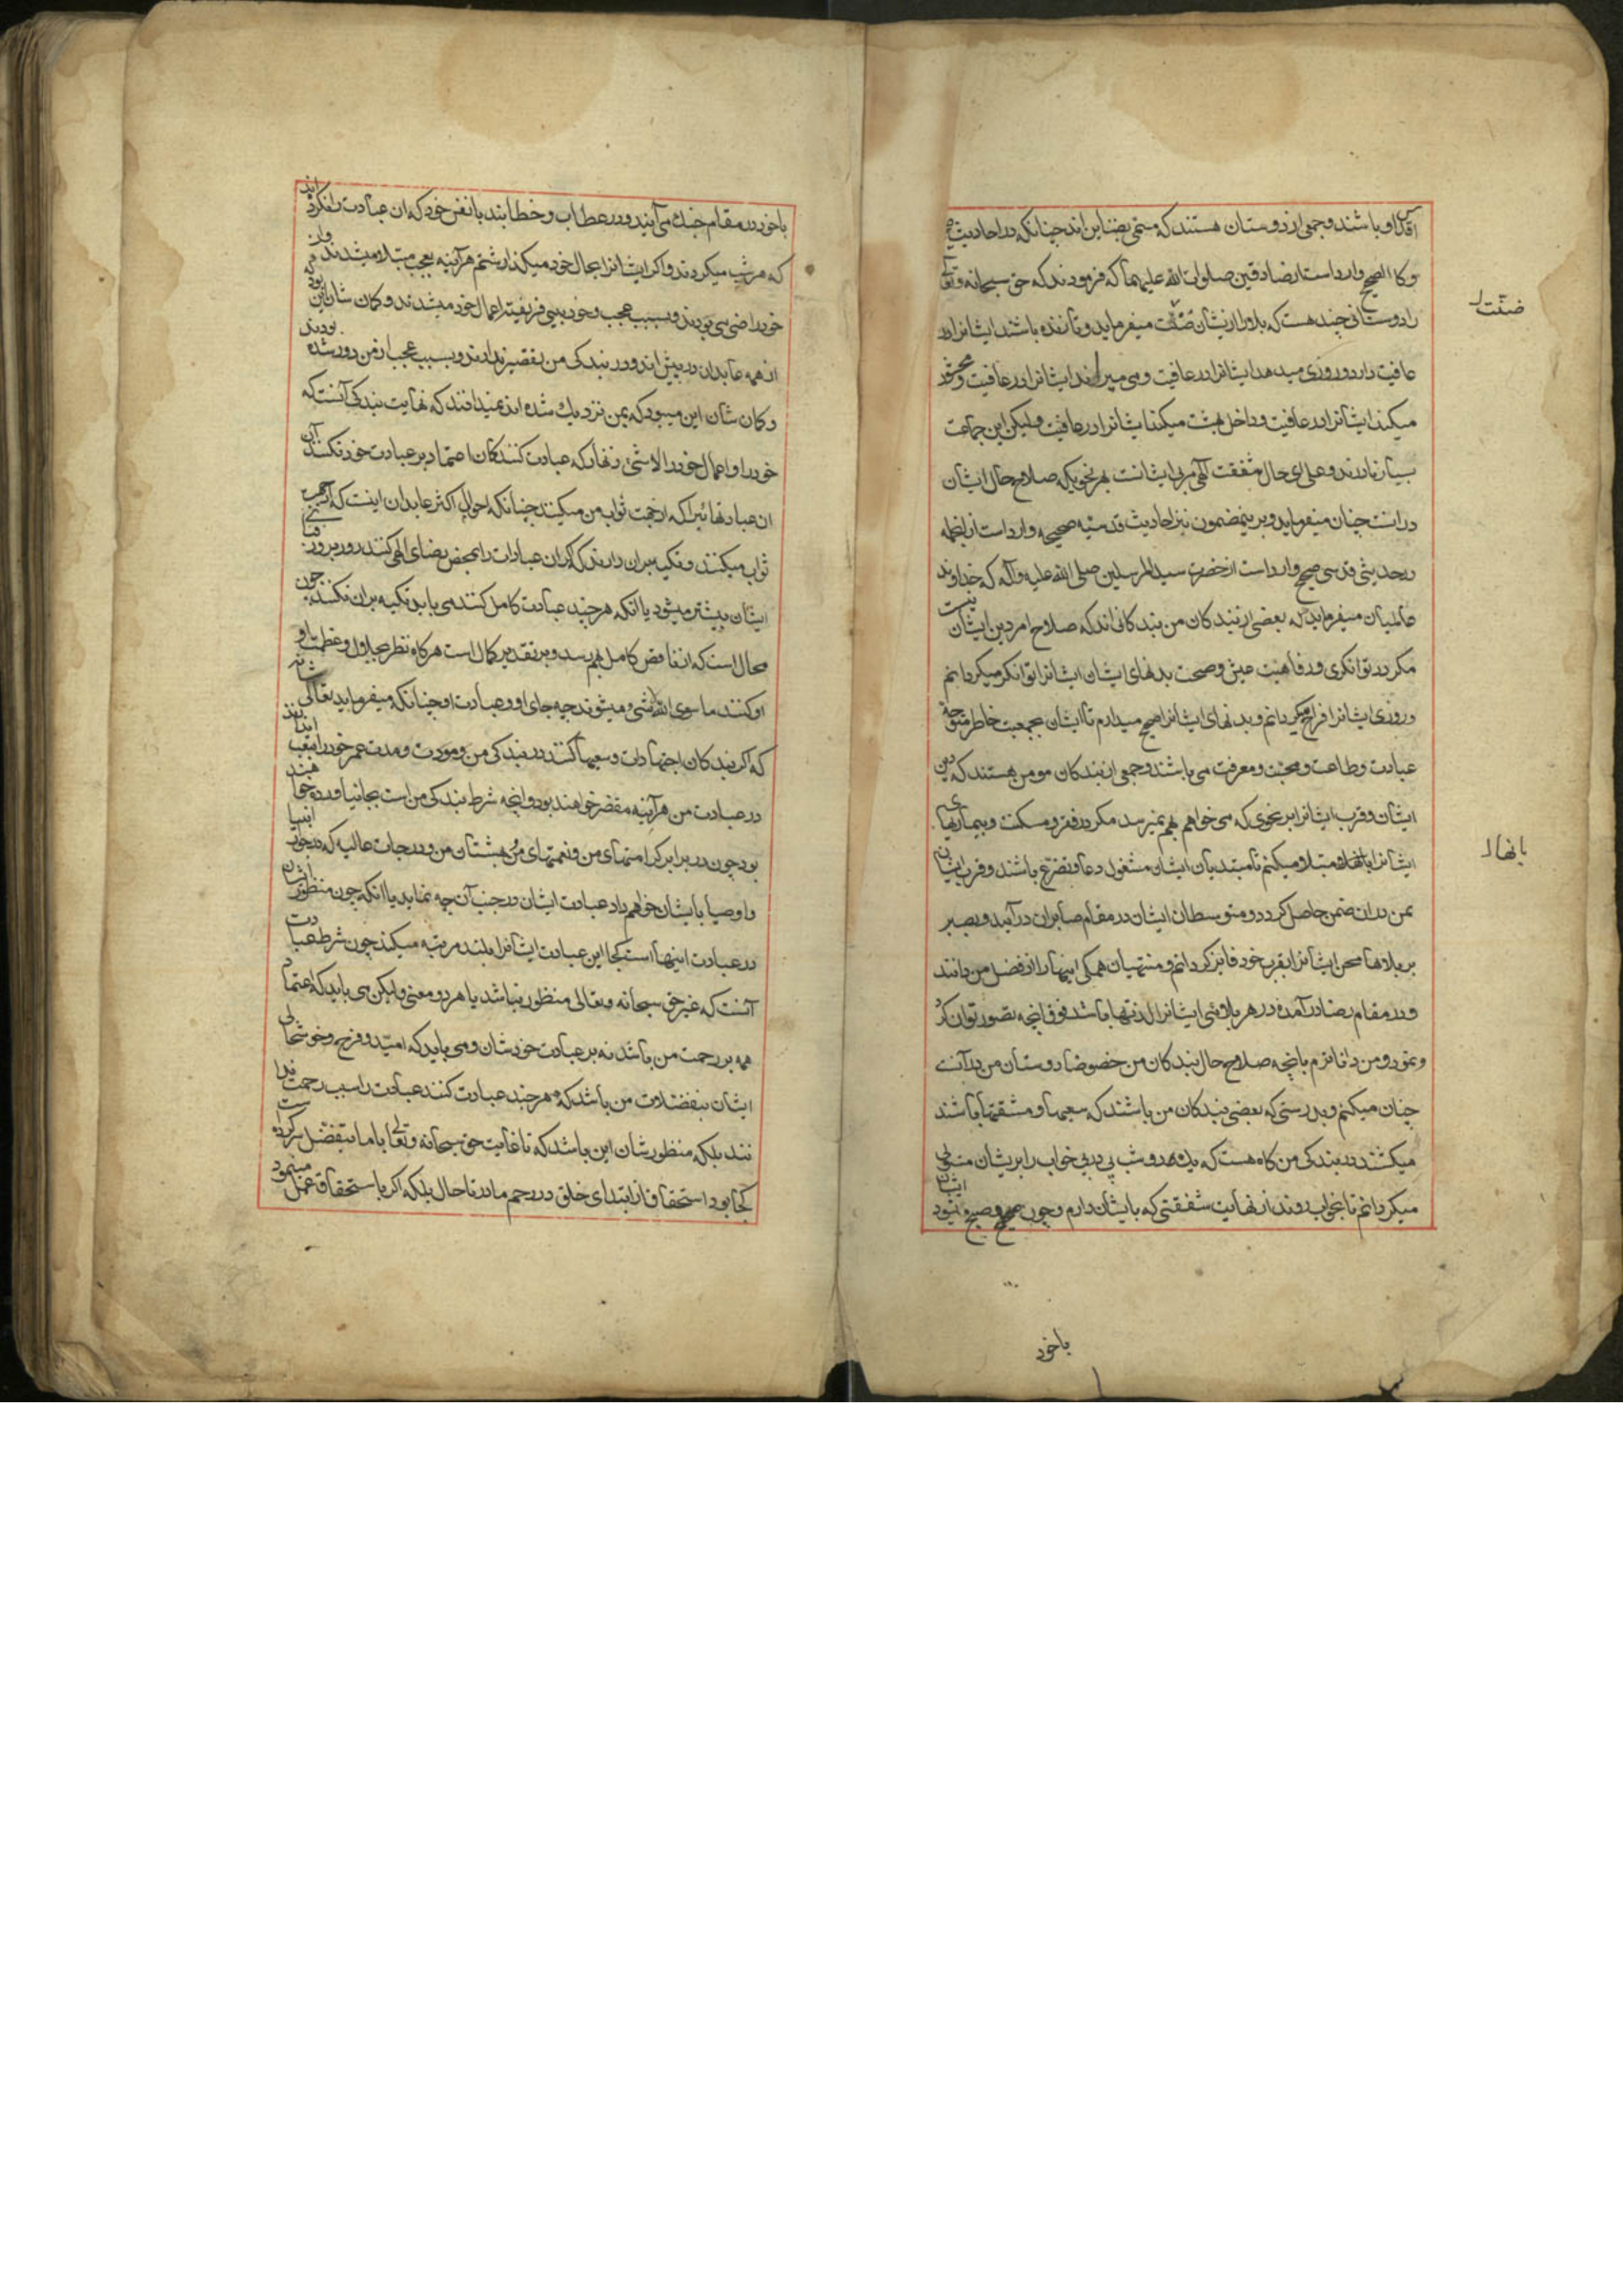 اقداو باشند و جمعی از دوستان هستند که مسمی بضناین اند چنانکه در احادیث
وکا الصحیح وارد است از صادقین صلوات الله علیهما که فرمودند که حق سبحانه و تعا
را دوستانی چند هست که بلا را از ایشان ضنّت میفرماید و تا زنده باشند ایشانرا در
ضنّت
عافیت دارد و روزی میدهد ایشانرا در عافیت و می میراند ایشانرا در عافیت و محشور
میکند ایشانرا در عافیت و داخل بهشت میکند ایشانرا در عافیت و لیکن این جماعت
بسیار نادرند و علی ای حال شفقت الهی مربی ایشانست بهر نحویکه صلاح حال ایشان
در انست چنان میفرماید و برینمضمون نیز احادیث قدسیّه صحیحه وارد است از انجمله
در حدیثی قدسی صحیح وارد است از حضرت سید المرسلین صلی الله علیه و آله که خداوند
عالمیان میفرماید که بعضی از بندکان من بندکانی اند که صلاح امر دین ایشان نیست
مکر در توانکری و رفاهیت عیش و صحت بدنهای ایشان ایشانرا توانکر میکردانم
و روزی ایشانرا فراخ میکردانم و بدنهای ایشانرا صحیح میدارم تا ایشان بجمعیت خاطر متوجه
عبادت و طاعت و محبّت و معرفت می باشند و جمعی از بندکان مومن هستند که دین
ایشان و قرب ایشانرا بر نحوی که می خواهم بهم نمیرسد مکر در فقر و مسکنت و بیماریهای
ایشانرا بانها مبتلا میکنم تا مبتدیان ایشان مشغول دعا و تضرّع باشند و قرب ایشان
بانها
بمن در ان ضمن حاصل کردد و متوسطان ایشان در مقام صابران در آیند و بصبر
بر بلاها و محن ایشانرا بقرب خود فایز کردانم و منتهیان همکی اینها را از فضل من دانند
و در مقام رضا در آمده در هر بلائی ایشانرا لذتها باشد فوق انچه تصور توان کرد
و نمود و من داناترم بانچه صلاح حال بندکان من خصوصا دوستان من در آنست
چنان میکنم و بدرستی که بعضی بندکان من باشند که سعیها و مشقتها باشند
میکشند در بندکی من کاه هست که یک و دو شب پی در پی خواب را بر ایشان مستولی
میکردانم تا بخواب روند از نهایت شفقتی که با یشان دارم و چون صبح میشود ایشان
باخود
باخود در مقام جنک می آیند و در عطاب و خطابند با نفس خود که ان عبادت را نکرده اند
که هر شب میکردند و اکر ایشانرا بحال خود میکذارشتم هرآینه بعجب مبتلا میشدند و از
خود راضی می بودند و بسبب عجب و خود بینی فریفته اعمال خود میشدند و کمان شان این بود که
از همه عابدان در پیش اند و در بندکی من تقصیر ندارند و بسبب عجب از من دور شده بودند
و کمان شان این میبود که بمن نزدیک شده اند نمیدانند که نهایت بندکی آنست که
خود را و اعمال خود را لاشئ دانند زنهار که عبادت کنندکان اعتماد بر عبادت خود نکنند
ان عبادتهائیرا که از جهت ثواب من میکنند چنانکه احوال اکثر عابدان اینست که
ثواب میکنند و تکیه بر ان دارند که اکر ان عبادات را محض رضای الهی کنند روز بروز
ایشان بیشتر میشود یا انکه هر چند عبادت کامل کنند می باید تکیه بران نکنند چون
محال است که از ناقص کامل بهم رسد و بر تقدیر کمال است هر کاه نظر بجلال و عظمت او
او کنند ما سوی الله لاشئ میشوند چه جای او و عبادت او چنانکه میفرماید تعالی شانه
که اکر بندکان اجتهادات و سعیها کنند در بندکی من و مدت عمر خود را بتعب اندازند
در عبادت من هرآینه مقصر خواهند بود و انچه شرط بندکی من است بجا نیاورده خواهند
بود چون در برابر کرامتهای من و نعمتهای من و بهشتان من و درجات عالیه که در جوار انبیا
و اوصیا بایشان خواهم داد عبادت ایشان در جنب آن چه نماید یا انکه چون منظور ایشان
در عبادت اینها است کجا این عبادت ایشانرا بلند مرتبه میکند چون شرط عبادت
آنست که غیر حق سبحانه و تعالی منظور نباشد یا هر دو معنی و لیکن می باید که اعتماد
همه بر رحمت من باشد نه بر عبادت خودشان و می باید که امید و فرح و خوشحالی
ایشان بتفضلات من باشد که هر چند عبادت کنند عبادت را سبب رحمت ندا
نند بلکه منظور شان این باشد که تا غایت حق سبحانه و تعالی با ما بتفضل سر کرده است
کجا بود استحقاق از ابتدای خلق در رحم مادر تا حال بلکه اکر با استحقاق عمل مینمود